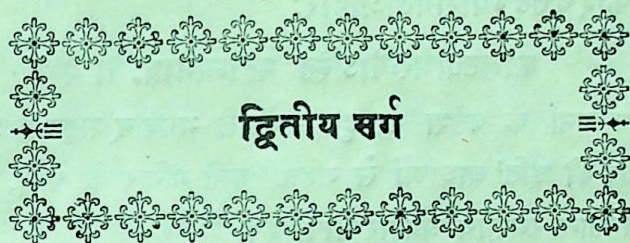 द्वितीय सर्ग